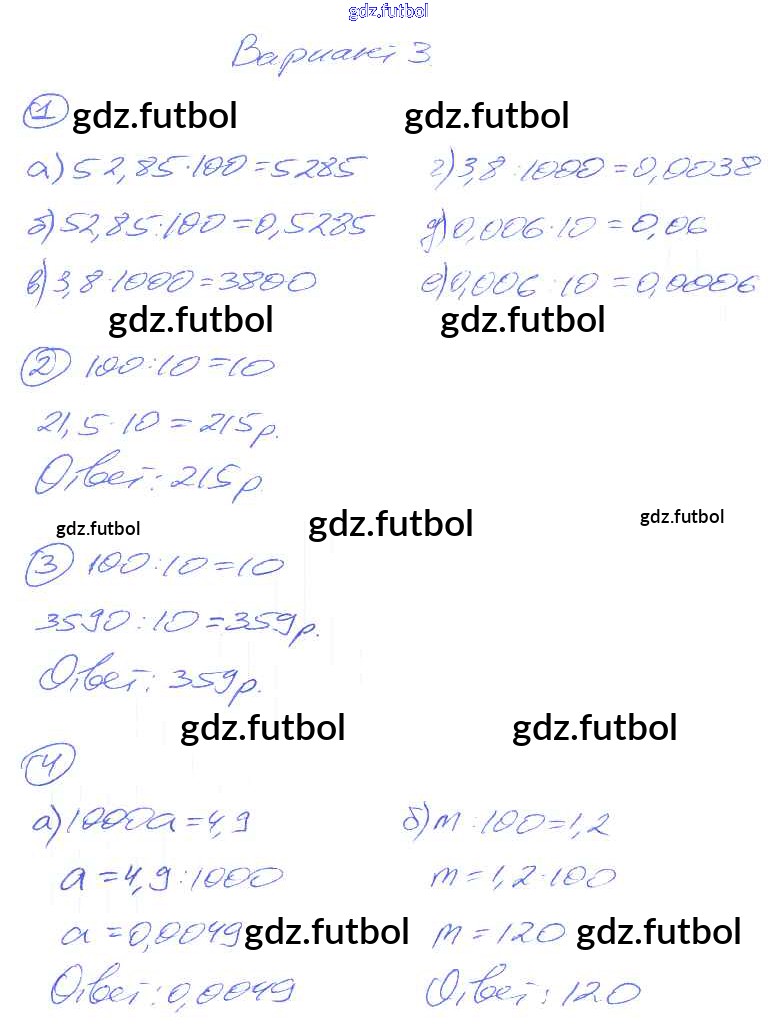 gdz.futbol
Вариант 3
1 gdz.futbol gdz.futbol
а) 52,85·100=5285 г) 3,8:1000=0,0038
б) 52,85:100=0,5285 д) 0,006·10=0,06
в) 3,8·1000=3800 е) 0,006:10=0,0006
gdz.futbol gdz.futbol
2 100:10=10
21,5·10=215р.
Ответ: 215р.
gdz.futbol gdz.futbol gdz.futbol
3 100:10=10
3590:10=359р.
Ответ: 359р.
gdz.futbol gdz.futbol
4
а) 1000a=4,9 б) m:100=1,2
a=4,9:1000 m=1,2·100
a=0,0049 gdz.futbol m=120 gdz.futbol
Ответ: 0,0049 Ответ: 120